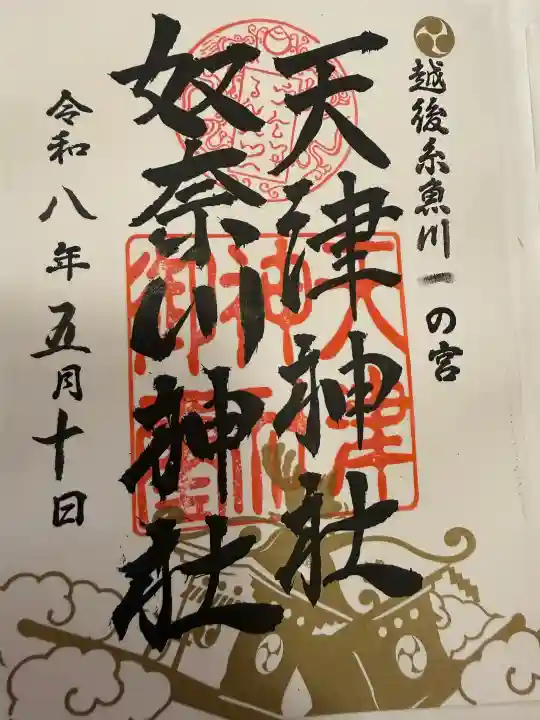 越後糸魚川一の宮
天津神社
奴奈川神社
令和八年五月十日
天津
神社
御璽